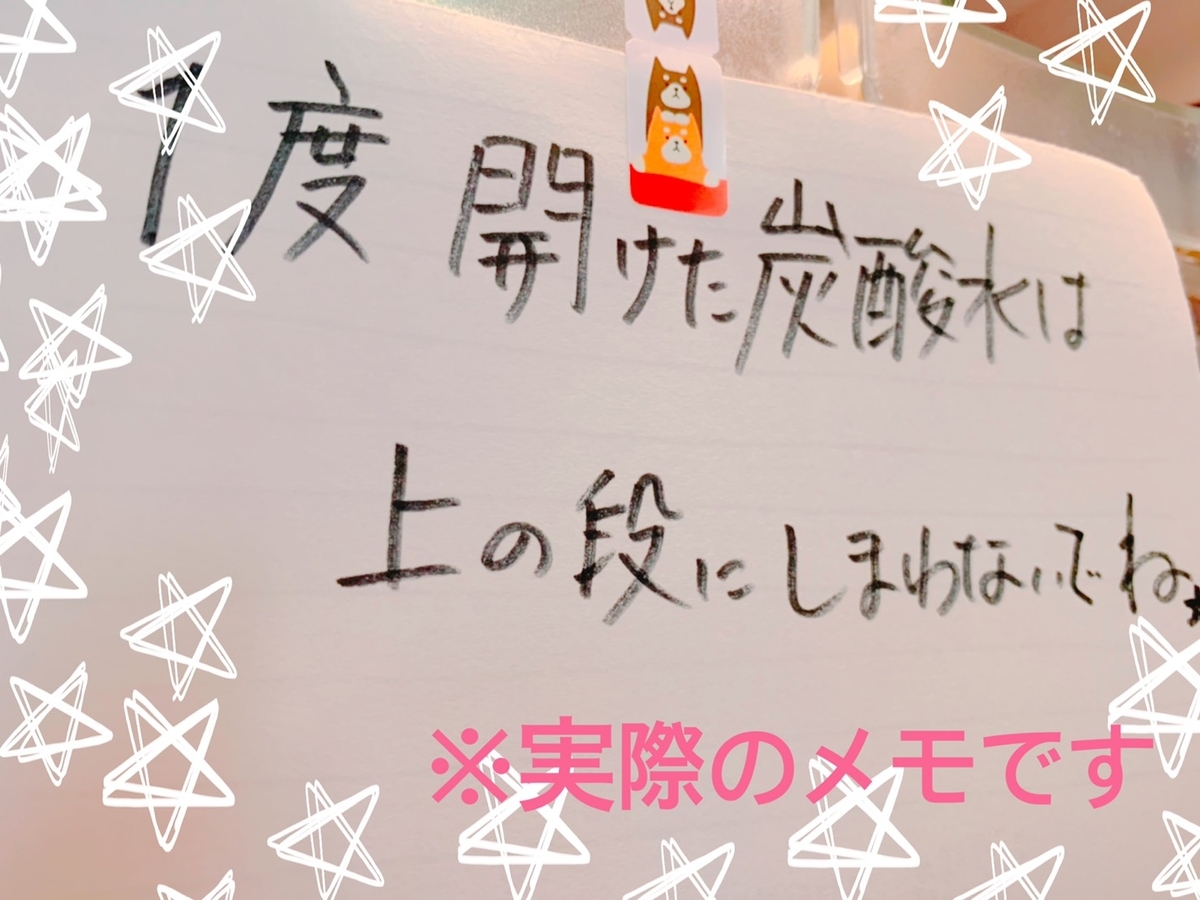 1度開けた炭酸水は
上の段にしまわないでね
※実際のメモです